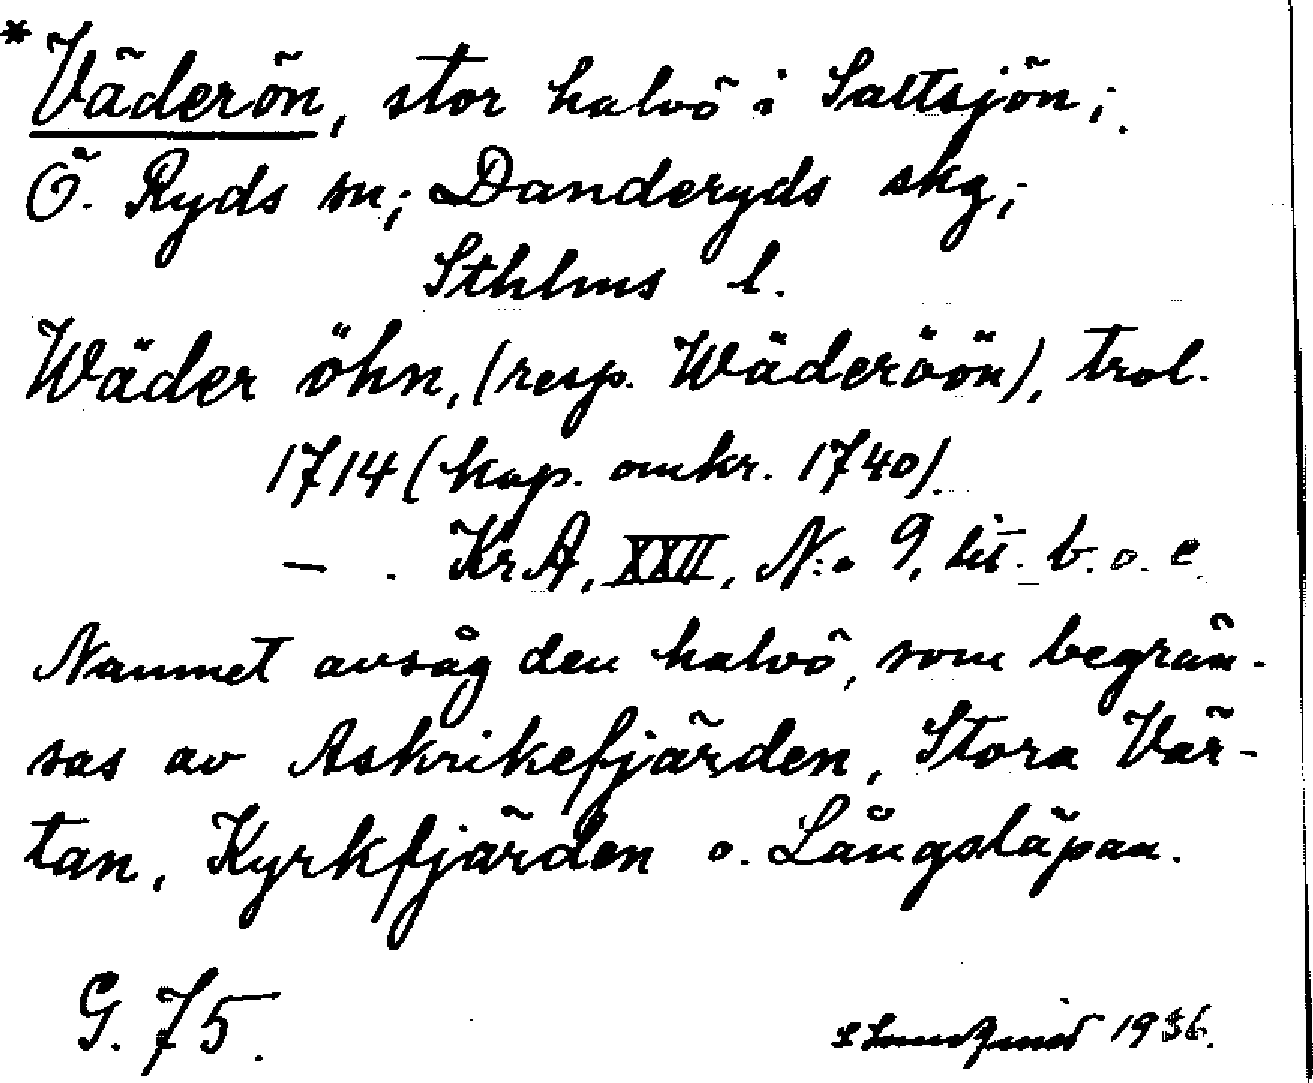 *Väderön, stor halvö i Saltsjön;
Ö. Ryds sn; Danderyds skg;
Sthlms l.
Wäder öhn, (resp. Wäderöön), trol.
1714 (kop. omkr. 1740).
— . KrA, XXII, N:o 9, lit. b. o. c
Namnet avsåg den halvö, som begrän-
sas av Askrikefjärden, Stora Vär-
tan, Kyrkfjärden o. Långstäpan.
G. 75.
1936.